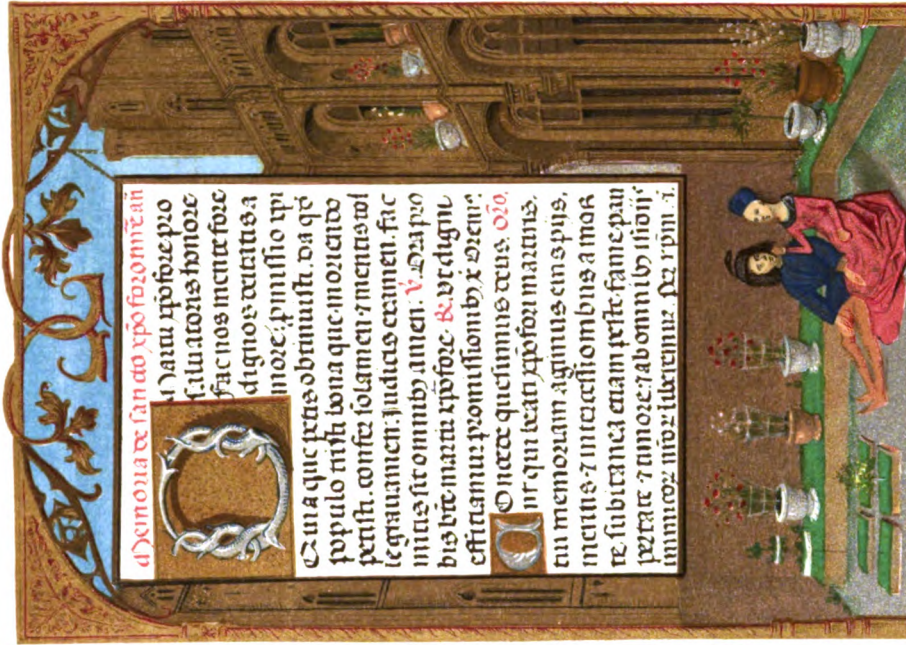 Memoria de sancto xp̄oforo mr̄e. an̄
O Martir xp̄ofore pro
saluatoris honore
fac nos mente fore
dignos deitatis a
more: p̄missio xpi
Quia que petis obtinuisti. da q̄
populo tristi bona que moriendo
petisti. confer solamen ⁊ mentis tol
le grauamen. Judicis examen. fac
mitis sit omnibꝫ amen. V. Ora pro
bis bt̄e martir xp̄ofore R. vt digni
efficiamur promissionibꝫ
Concede quesumus deus. Oro.
vt qui beati xp̄ofori martiris.
tui memoriam agimus
meritis ⁊ intercessionibus a mor
te subitanea etiam peste fame pau
pertate ⁊ timore: ⁊ ab omnibꝫ
inimicor nr̄or liberemur. Per xp̄m.